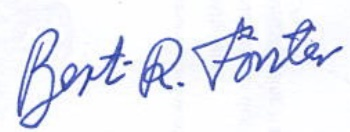 Bert R. Förster